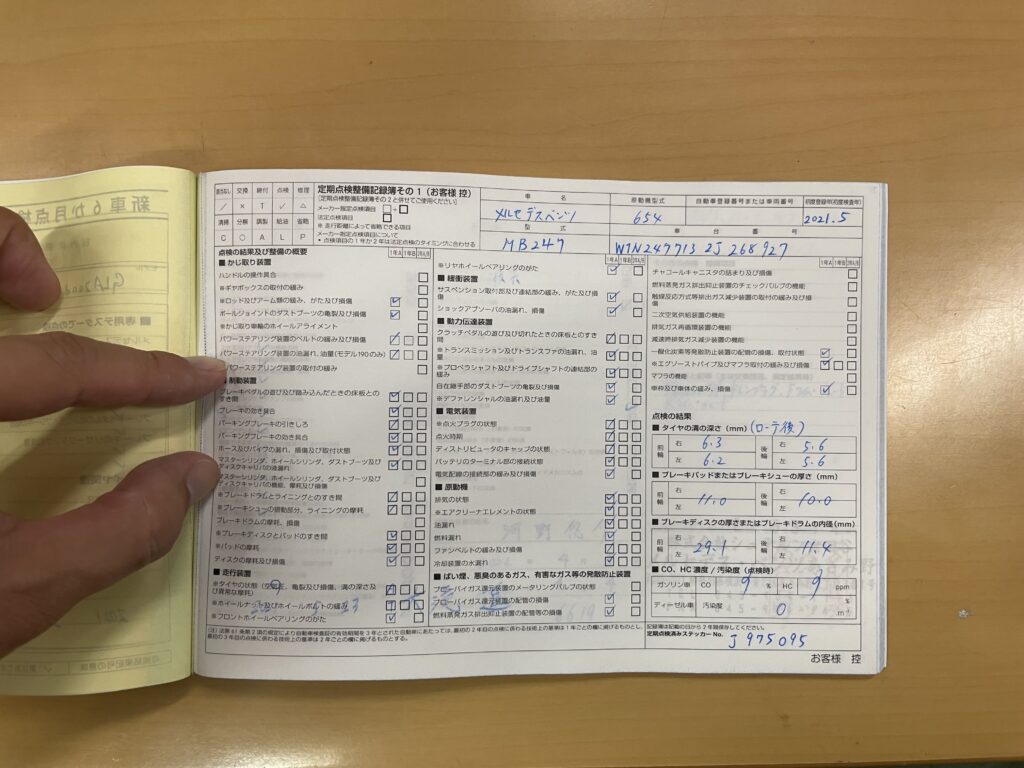 新車6か月点検
GLA200d
直ちなし 交換 締付 点検 修理
／ × T ✓ △
清掃 分解 調整 給油 省略
C ○ A L P
定期点検整備記録簿その1（お客様 控）
［定期点検整備記録簿その2と併せてご使用ください］
メーカー指定点検項目
法定点検項目
※ 走行距離によって省略できる項目
メーカー指定点検項目について
• 点検項目の1年か2年は法定点検のタイミングに合わせる
車名 原動機型式 自動車登録番号または車両番号 初度登録年(初度検査年)
メルセデスベンツ 654 2021.5
型式 車台番号
MB247 W1N247713 2J 268927
点検の結果及び整備の概要
■ かじ取り装置
ハンドルの操作具合
※ギヤボックスの取付の緩み
※ロッド及びアーム類の緩み、がた及び損傷
ボールジョイントのダストブーツの亀裂及び損傷
※かじ取り車輪のホイールアライメント
パワーステアリング装置のベルトの緩み及び損傷
パワーステアリング装置の油漏れ、油量(モデル190のみ)
パワーステアリング装置の取付の緩み
■ 制動装置
ブレーキペダルの遊び及び踏み込んだときの床板とのすき間
ブレーキの効き具合
パーキングブレーキの引きしろ
パーキングブレーキの効き具合
ホース及びパイプの漏れ、損傷及び取付状態
マスターシリンダ、ホイールシリンダ、ダストブーツ及びディスクキャリパの液漏れ
マスターシリンダ、ホイールシリンダ、ダストブーツ及びディスクキャリパの機能、摩耗及び損傷
※ブレーキドラムとライニングとのすき間
※ブレーキシューの摺動部分、ライニングの摩耗
ブレーキドラムの摩耗、損傷
※ブレーキディスクとパッドのすき間
※パッドの摩耗
ディスクの摩耗及び損傷
■ 走行装置
※タイヤの状態（空気圧、亀裂及び損傷、溝の深さ及び異常な摩耗）
※ホイールナット及びホイールボルトの緩み
※フロントホイールベアリングのがた
※リヤホイールベアリングのがた
■ 緩衝装置
サスペンション取付部及び連結部の緩み、がた及び損傷
ショックアブソーバの油漏れ、損傷
■ 動力伝達装置
クラッチペダルの遊び及び切れたときの床板とのすき間
※トランスミッション及びトランスファの油漏れ、油量
※プロペラシャフト及びドライブシャフトの連結部の緩み
自在継手部のダストブーツの亀裂及び損傷
※デファレンシャルの油漏れ及び油量
■ 電気装置
※点火プラグの状態
点火時期
ディストリビュータのキャップの状態
バッテリのターミナル部の接続状態
電気配線の接続部の緩み及び損傷
■ 原動機
排気の状態
※エアクリーナエレメントの状態
油漏れ
燃料漏れ
ファンベルトの緩み及び損傷
冷却装置の水漏れ
■ ばい煙、悪臭のあるガス、有害なガス等の発散防止装置
ブローバイガス還元装置のメータリングバルブの状態
ブローバイガス還元装置の配管の損傷
燃料蒸発ガス排出抑止装置の配管等の損傷
チャコールキャニスタの詰まり及び損傷
燃料蒸発ガス排出抑止装置のチェックバルブの機能
触媒反応方式等排出ガス減少装置の取付の緩み及び損傷
二次空気供給装置の機能
排気ガス再循環装置の機能
減速時排気ガス減少装置の機能
一酸化炭素等発散防止装置の配管の損傷、取付状態
※エグゾーストパイプ及びマフラ取付の緩み及び損傷
マフラの機能
車枠及び車体の緩み、損傷
点検の結果
■ タイヤの溝の深さ（mm）(ローテ後)
前輪 右 6.3 後輪 右 5.6
左 6.2 左 5.6
■ ブレーキパッドまたはブレーキシューの厚さ（mm）
前輪 右 11.0 後輪 右 10.0
左 左
■ ブレーキディスクの厚さまたはブレーキドラムの内径(mm)
前輪 右 29.1 後輪 右 11.4
左 左
■ CO、HC 濃度 / 汚染度（点検時）
ガソリン車 CO % HC ppm
ディーゼル車 汚染度 0 % m⁻¹
(注) 法第61条第2項の規定により自動車検査証の有効期間を3年とされた自動車にあたっては、最初の2年目の点検に係わる技術上の基準は1年ごとの欄に掲げるものとし、最初の3年目の点検に係わる技術上の基準は2年ごとの欄に掲げるものとする。
記録簿は記載の日から2年間保存してください。
定期点検済みステッカー No. J 975095
お客様 控